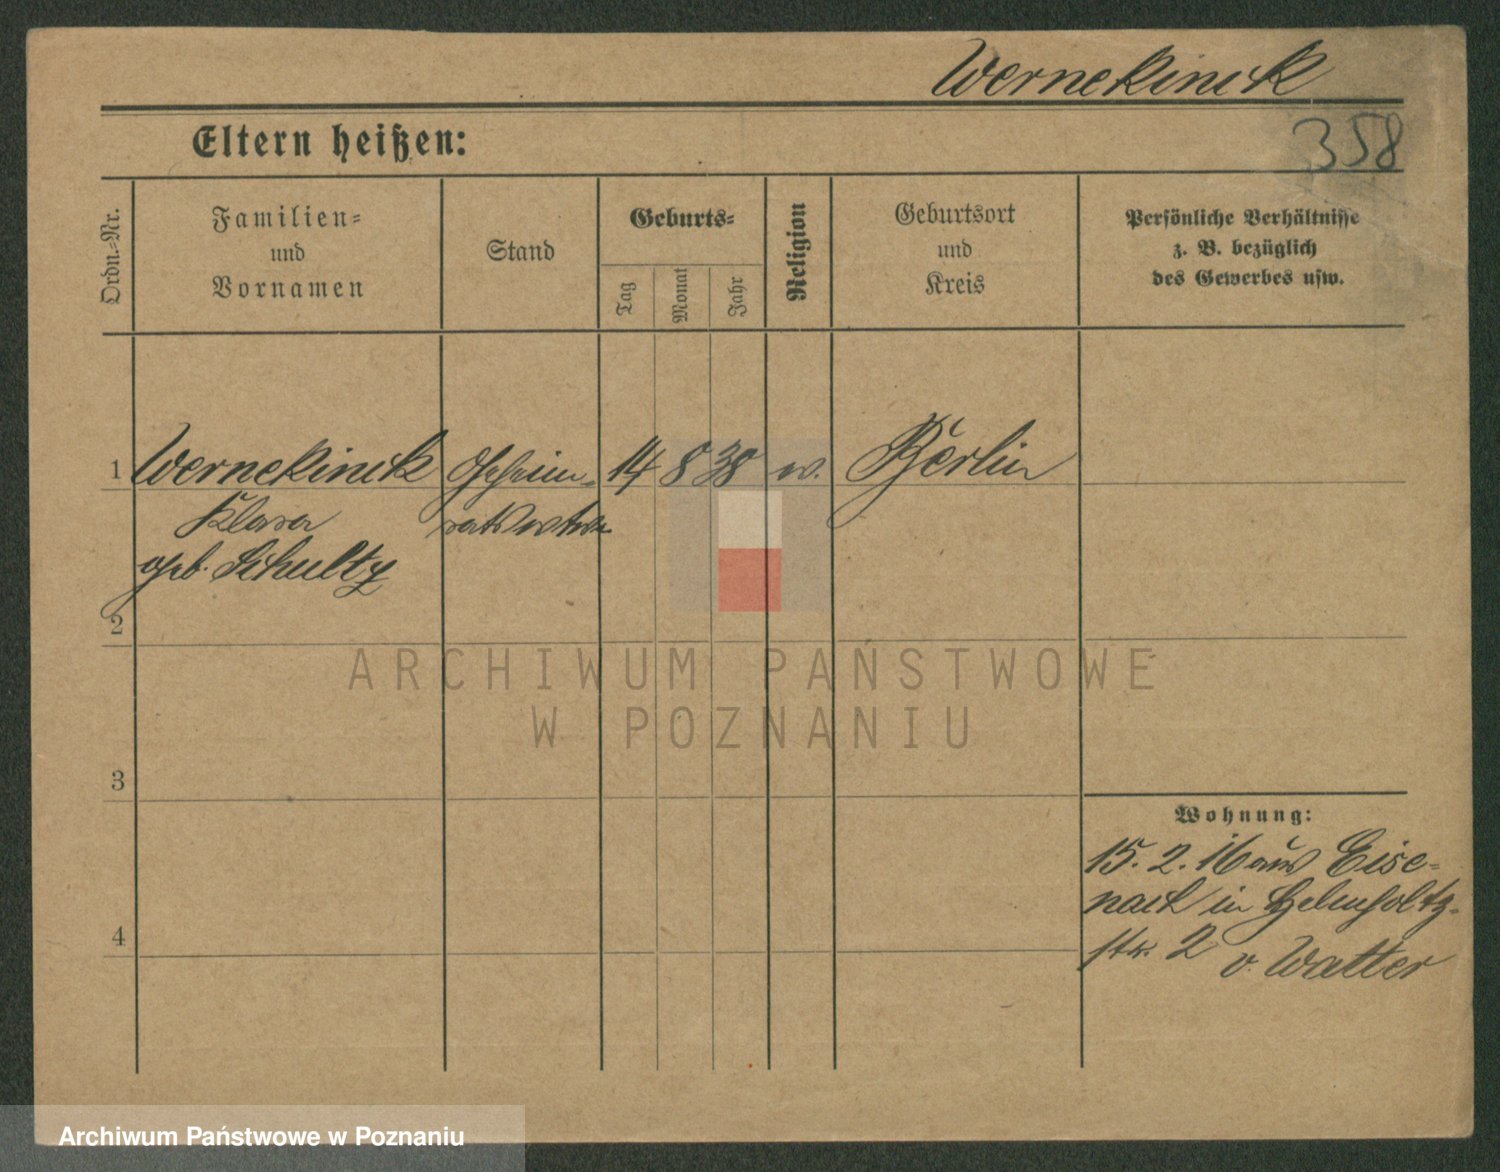 Wernekinck
358
Eltern heißen:
Ordn.-Nr.
Familien-
und
Vornamen
Stand
Geburts-
Tag
Monat
Jahr
Religion
Geburtsort
und
Kreis
Persönliche Verhältnisse
z. B. bezüglich
des Gewerbes usw.
1 Wernekinck Geheim- 14 8 38 ev. Berlin
Klara ratswtwe
geb. Schultz
2
ARCHIWUM PAŃSTWOWE
W POZNANIU
3
Wohnung:
15. 2. 16 aus Eise-
nach in Helmholtz-
4
str. 2 v. Watter
Archiwum Państwowe w Poznaniu